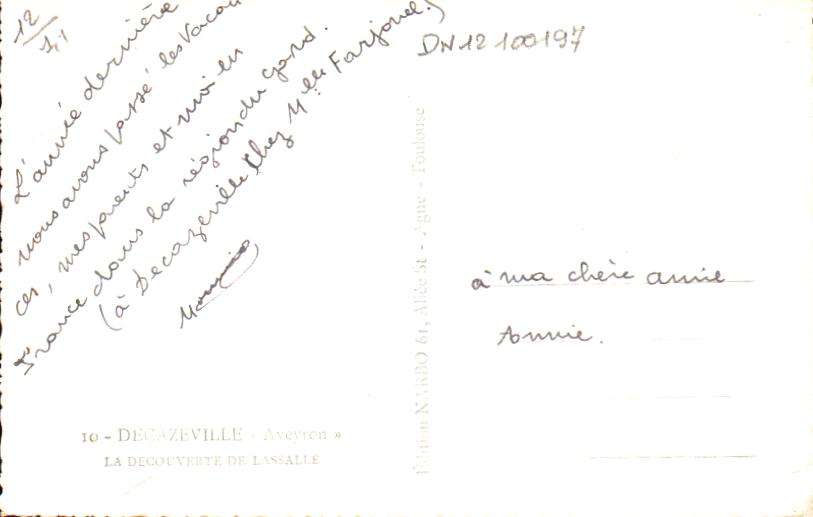 12
DN12 100197
L'année dernière
nous avons passé les Vacan
ces, mes parents et moi en
France dans la région du gard.
(à Decazeville chez Mlle Farjonel.)
à ma chère amie
Annie.
10 - DECAZEVILLE « Aveyron »
LA DECOUVERTE DE LASSALLE
Edition NARBO 61, Allée St - Agne - Toulouse